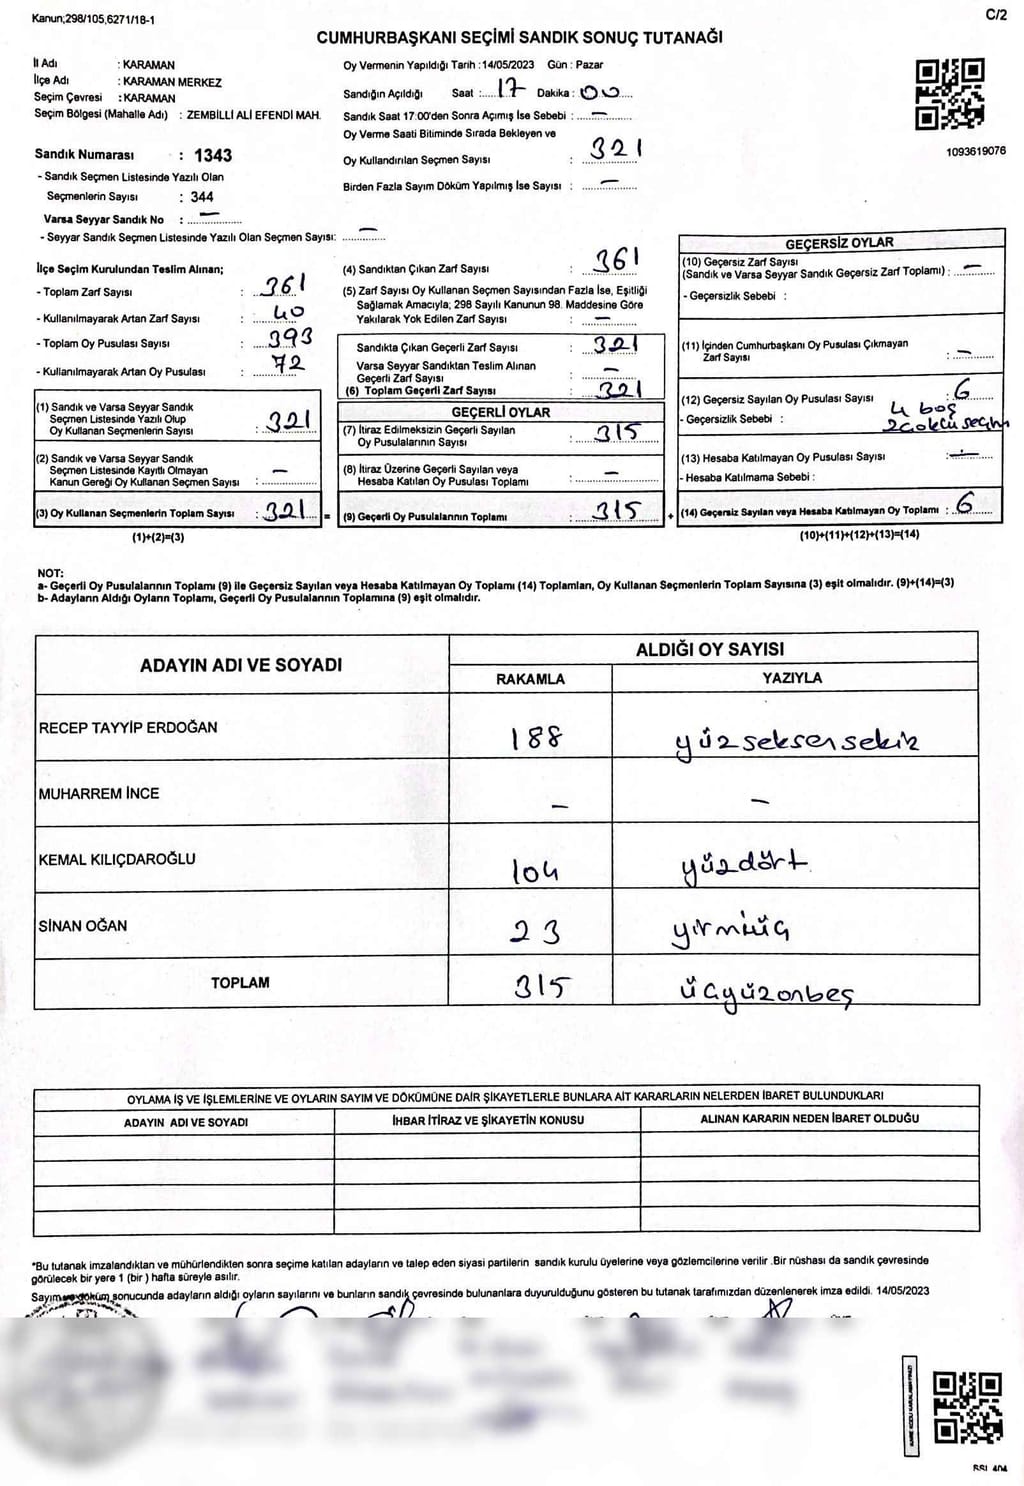 Kanun;298/105,6271/18-1
C/2
CUMHURBAŞKANI SEÇİMİ SANDIK SONUÇ TUTANAĞI
İl Adı : KARAMAN
İlçe Adı : KARAMAN MERKEZ
Seçim Çevresi : KARAMAN
Seçim Bölgesi (Mahalle Adı) : ZEMBİLLİ ALİ EFENDİ MAH.
Sandık Numarası : 1343
- Sandık Seçmen Listesinde Yazılı Olan
Seçmenlerin Sayısı : 344
Varsa Seyyar Sandık No : —
- Seyyar Sandık Seçmen Listesinde Yazılı Olan Seçmen Sayısı: —
Oy Vermenin Yapıldığı Tarih : 14/05/2023 Gün : Pazar
Sandığın Açıldığı Saat : 17 Dakika : 00
Sandık Saat 17:00'den Sonra Açımış İse Sebebi : —
Oy Verme Saati Bitiminde Sırada Bekleyen ve
Oy Kullandırılan Seçmen Sayısı : 321
Birden Fazla Sayım Döküm Yapılmış İse Sayısı : —
1093619076
İlçe Seçim Kurulundan Teslim Alınan;
- Toplam Zarf Sayısı : 361
- Kullanılmayarak Artan Zarf Sayısı : 40
- Toplam Oy Pusulası Sayısı : 393
- Kullanılmayarak Artan Oy Pusulası : 72
(1) Sandık ve Varsa Seyyar Sandık
Seçmen Listesinde Yazılı Olup
Oy Kullanan Seçmenlerin Sayısı : 321
(2) Sandık ve Varsa Seyyar Sandık
Seçmen Listesinde Kayıtlı Olmayan
Kanun Gereği Oy Kullanan Seçmen Sayısı : —
(3) Oy Kullanan Seçmenlerin Toplam Sayısı : 321 =
(1)+(2)=(3)
(4) Sandıktan Çıkan Zarf Sayısı : 361
(5) Zarf Sayısı Oy Kullanan Seçmen Sayısından Fazla İse, Eşitliği
Sağlamak Amacıyla; 298 Sayılı Kanunun 98. Maddesine Göre
Yakılarak Yok Edilen Zarf Sayısı : —
Sandıkta Çıkan Geçerli Zarf Sayısı : 321
Varsa Seyyar Sandıktan Teslim Alınan
Geçerli Zarf Sayısı : —
(6) Toplam Geçerli Zarf Sayısı : 321
GEÇERLİ OYLAR
(7) İtiraz Edilmeksizin Geçerli Sayılan
Oy Pusulalarının Sayısı : 315
(8) İtiraz Üzerine Geçerli Sayılan veya
Hesaba Katılan Oy Pusulası Toplamı : —
(9) Geçerli Oy Pusulalarının Toplamı : 315 +
GEÇERSİZ OYLAR
(10) Geçersiz Zarf Sayısı
(Sandık ve Varsa Seyyar Sandık Geçersiz Zarf Toplamı) : —
- Geçersizlik Sebebi :
(11) İçinden Cumhurbaşkanı Oy Pusulası Çıkmayan
Zarf Sayısı : —
(12) Geçersiz Sayılan Oy Pusulası Sayısı : 6
- Geçersizlik Sebebi : 4 boş
(13) Hesaba Katılmayan Oy Pusulası Sayısı : —
- Hesaba Katılmama Sebebi :
(14) Geçersiz Sayılan veya Hesaba Katılmayan Oy Toplamı : 6
(10)+(11)+(12)+(13)=(14)
NOT:
a- Geçerli Oy Pusulalarının Toplamı (9) ile Geçersiz Sayılan veya Hesaba Katılmayan Oy Toplamı (14) Toplamları, Oy Kullanan Seçmenlerin Toplam Sayısına (3) eşit olmalıdır. (9)+(14)=(3)
b- Adayların Aldığı Oyların Toplamı, Geçerli Oy Pusulalarının Toplamına (9) eşit olmalıdır.
ADAYIN ADI VE SOYADI
ALDIĞI OY SAYISI
RAKAMLA YAZIYLA
RECEP TAYYİP ERDOĞAN 188 yüzseksensekiz
MUHARREM İNCE — —
KEMAL KILIÇDAROĞLU 104 yüzdört
SİNAN OĞAN 23 yirmiüç
TOPLAM 315 üçyüzonbeş
OYLAMA İŞ VE İŞLEMLERİNE VE OYLARIN SAYIM VE DÖKÜMÜNE DAİR ŞİKAYETLERLE BUNLARA AİT KARARLARIN NELERDEN İBARET BULUNDUKLARI
ADAYIN ADI VE SOYADI İHBAR İTİRAZ VE ŞİKAYETİN KONUSU ALINAN KARARIN NEDEN İBARET OLDUĞU
*Bu tutanak imzalandıktan ve mühürlendikten sonra seçime katılan adayların ve talep eden siyasi partilerin sandık kurulu üyelerine veya gözlemcilerine verilir .Bir nüshası da sandık çevresinde
görülecek bir yere 1 (bir ) hafta süreyle asılır.
Sayım ve döküm sonucunda adayların aldığı oyların sayılarını ve bunların sandık çevresinde bulunanlara duyurulduğunu gösteren bu tutanak tarafımızdan düzenlenerek imza edildi. 14/05/2023